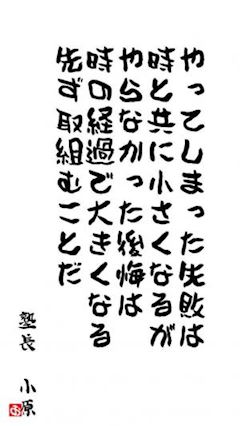 やってしまった失敗は
時と共に小さくなるが
やらなかった後悔は
時の経過で大きくなる
先ず取組むことだ
塾長 小原